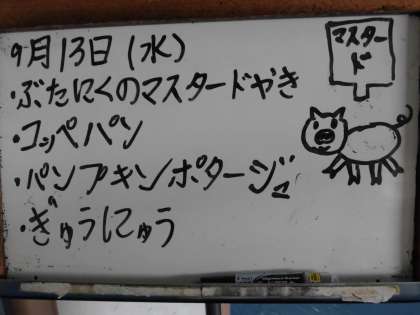 9月13日(水)
・ぶたにくのマスタードやき
・コッペパン
・パンプキンポタージュ
・ぎゅうにゅう
マスター
ド